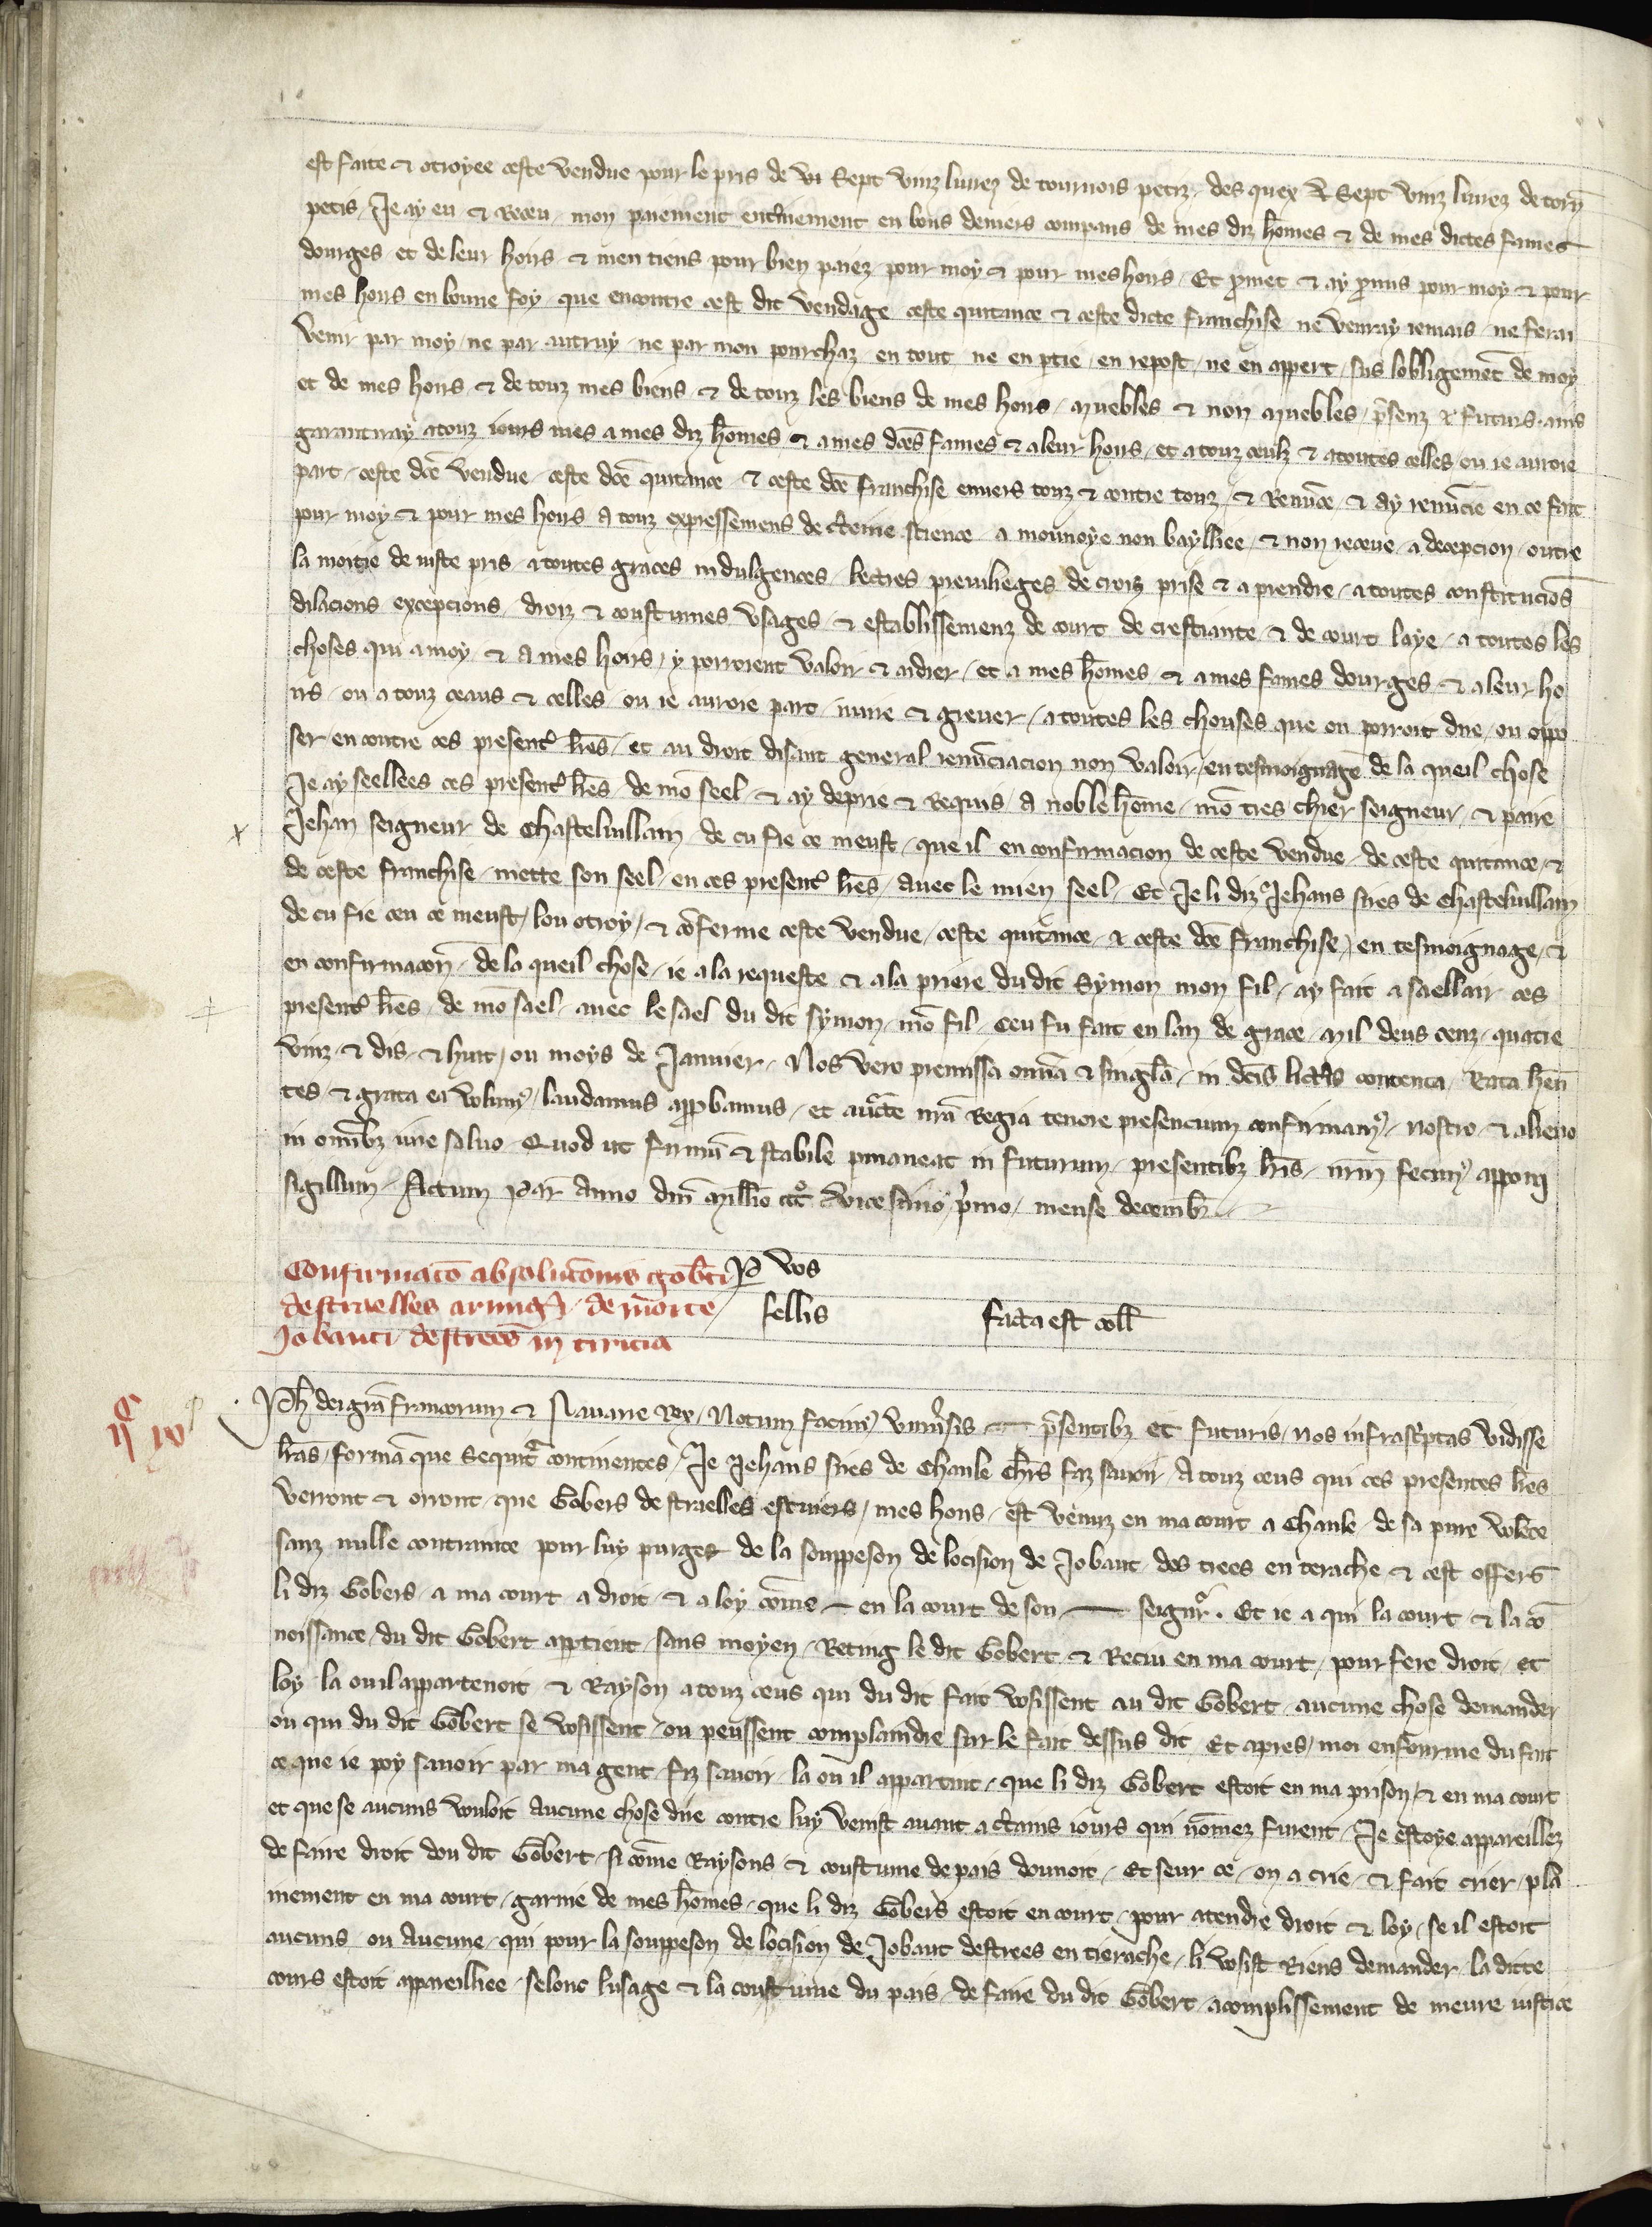 est faite & otroyee ceste vendue pour le pris de vi sept vinz livrez de tournois petiz, des quex vi sept vinz livrez de torñ
petis, Je ay eu & Receu, mon paiement entieremẽt en bons deniers contpans de mes diz hõmes & de mes dictes fames
dourges et de leur hoirs & men tiens pour bien paiez pour moy & pour mes hoirs. Et ꝓmet & ay ꝓmis pour moy & pour
mes hoirs en bonne foy que encontre cest dit vendage ceste quitance & ceste dicte franchise ne venray iemais ne ferai
venir par moy, ne par autruy ne par mon pourchaz en tout, ne en ꝑtie, en repost, ne en appert, sus lobligemẽt de moy
et de mes hoirs & de touz mes biens & de touz les biens de mes hoirs, muebles & non muebles, p̃senz & futurs, ains
garantiray a touz iours mes a mes diz hõmes & a mes dc̃es fames & a leur hoirs, et a touz ceulz & a toutes celles, ou ie auroie
part, ceste dc̃e vendue, ceste dc̃e quitance & ceste dc̃e franchise envers touz & contre touz, & Renũce & ay renũcie en ce fait
pour moy & pour mes hoirs a touz expressemens de c̃teine science a mounoye non bayllee, & non receue, a decepcion, outre
la moitie de iuste pris, a toutes graces indulgences lectres previleges de croiz prise & a prendre, a toutes constitucioñs
dilacions excepcions, droiz & coustumes usages & establissemenz de court de crestiante, & de court laye, a toutes les
choses qui a moy & a mes hoirs, y porroient valoir & aidier, et a mes hõmes & a mes fames dourges & a leur ho
irs, ou a touz ceaus & celles, ou ie auroie part, nuire & grever, a toutes les chouses que on porroit dire, ou oppo
ser encontre ces present̃ lr̃es, et au droit disant general renũciacion non valoir, en tesmoignage de la queil chose
Je ay seellees ces present̃ lr̃es, de mõ seel & ay deprie & Requis, a noble hõme, mõ tres chier seigneur, & paire
Jehan seigneur de Chastelvillain, de cu fie ce meust, que il en confirmacion de ceste vendue, de ceste quitance, &
de ceste franchise, mette son seel, en ces present̃ lr̃es, avec le mien seel, Et Je li diz Jehans sires de Chastelvillain
de cu fie ceu ce meust, lou otroy, & cõferme ceste vendue, ceste quitance & ceste dc̃e franchise, en tesmoignage, &
en confirmacoñ, de la queil chose, ie a la requeste & a la priere du dit Symon mon fil, ay fait a saellair ces
present̃ lr̃es, de mõ sael, avec le sael du dit symon, mõ fil. Ceu fu fait en lan de grace, mil deus cenz, quatre
vinz & dis, & huit, ou moys de Janvier. Nos vero premissa om̃ia & singl̃a, in dc̃is litt̃is contenta, Rata hen̄
tes & grata ea volumꝰ, laudamus app̃bamus, et auc̃te nr̃a Regia tenore presencium confirmamꝰ, nostro & alieno
in om̃ibz iure salvo. Quod ut firmũ & stabile ꝑmaneat in futurum, presentibz lr̃is, nr̃m fecimꝰ apponi
sigillum. Actum Par̃ Anno dñi mill̃io ccc͛ vicesimo p̃mo, mense decemb̃.
Confirmatõ absolucõnis gob̃ti P vos
destraelles armig̃i, de morte, sellis facta est coll̃
Jobanti destrees in tirica
iiijc iiij
Ph̃ dei gr̃a francorum & Navarre Rex, Notum facimꝰ uniṽsis p̃sentibz et futuris, nos infrasc̃ptas vidisse
lr̃as, formã que sequitꝰ continentes, Je Jehans sires de Chanle ch̃rs faz savoir, A touz ceus qui ces presentes lr̃es
verront & orront, que Gobers destraelles escuiers, mes hons, est venuz en ma court a Chanle, de sa pure volẽte
sanz nulle contrainte pour luy purger de la souppeson de locision de Jobant, des trees en terache & cest offers
li diz Gobers, a ma court a droit, & a loy cõme en la court de son seignr̃. Et ie a qui la court & la co
noissance, du dit Gobert apptient, sans moyen, Reting le dit Gobert & Reciu en ma court, pour fere droit, et
loy la ou il appartenoit & Rayson a touz ceus qui du dit fait vosissent au dit Gobert, aucune chose demander
ou qui du dit Gobert se vosissent, ou peussent complaindre sur le fait dessus dit Et apres, moi enfourme du fait
ce que ie poy savoir par ma gent, fiz savoir, la ou il appartint, que li diz Gobert estoit en ma prison, & en ma court
et que se aucuns vouloit aucune chose dire contre luy venist avant a c̃tains iours qui nõmez furent. Je estoye appareillez
de faire droit dou dit Gobert, si cõme Raysons & coustume de pais donnoit. Et seur ce, on a crie, & fait crier, pla
niement en ma court, garnie de mes hõmes, que li diz Gobers estoit en court, pour atendre droit & loy, se il estoit
aucuns ou aucune, qui pour la souppeson de locision de Jobant destrees en tierache, li vosist Riens demander, la ditte
cours estoit appareilliee, selonc lusage & la coustume du pais, de faire du dit Gobert, acomplissement de meure iustice